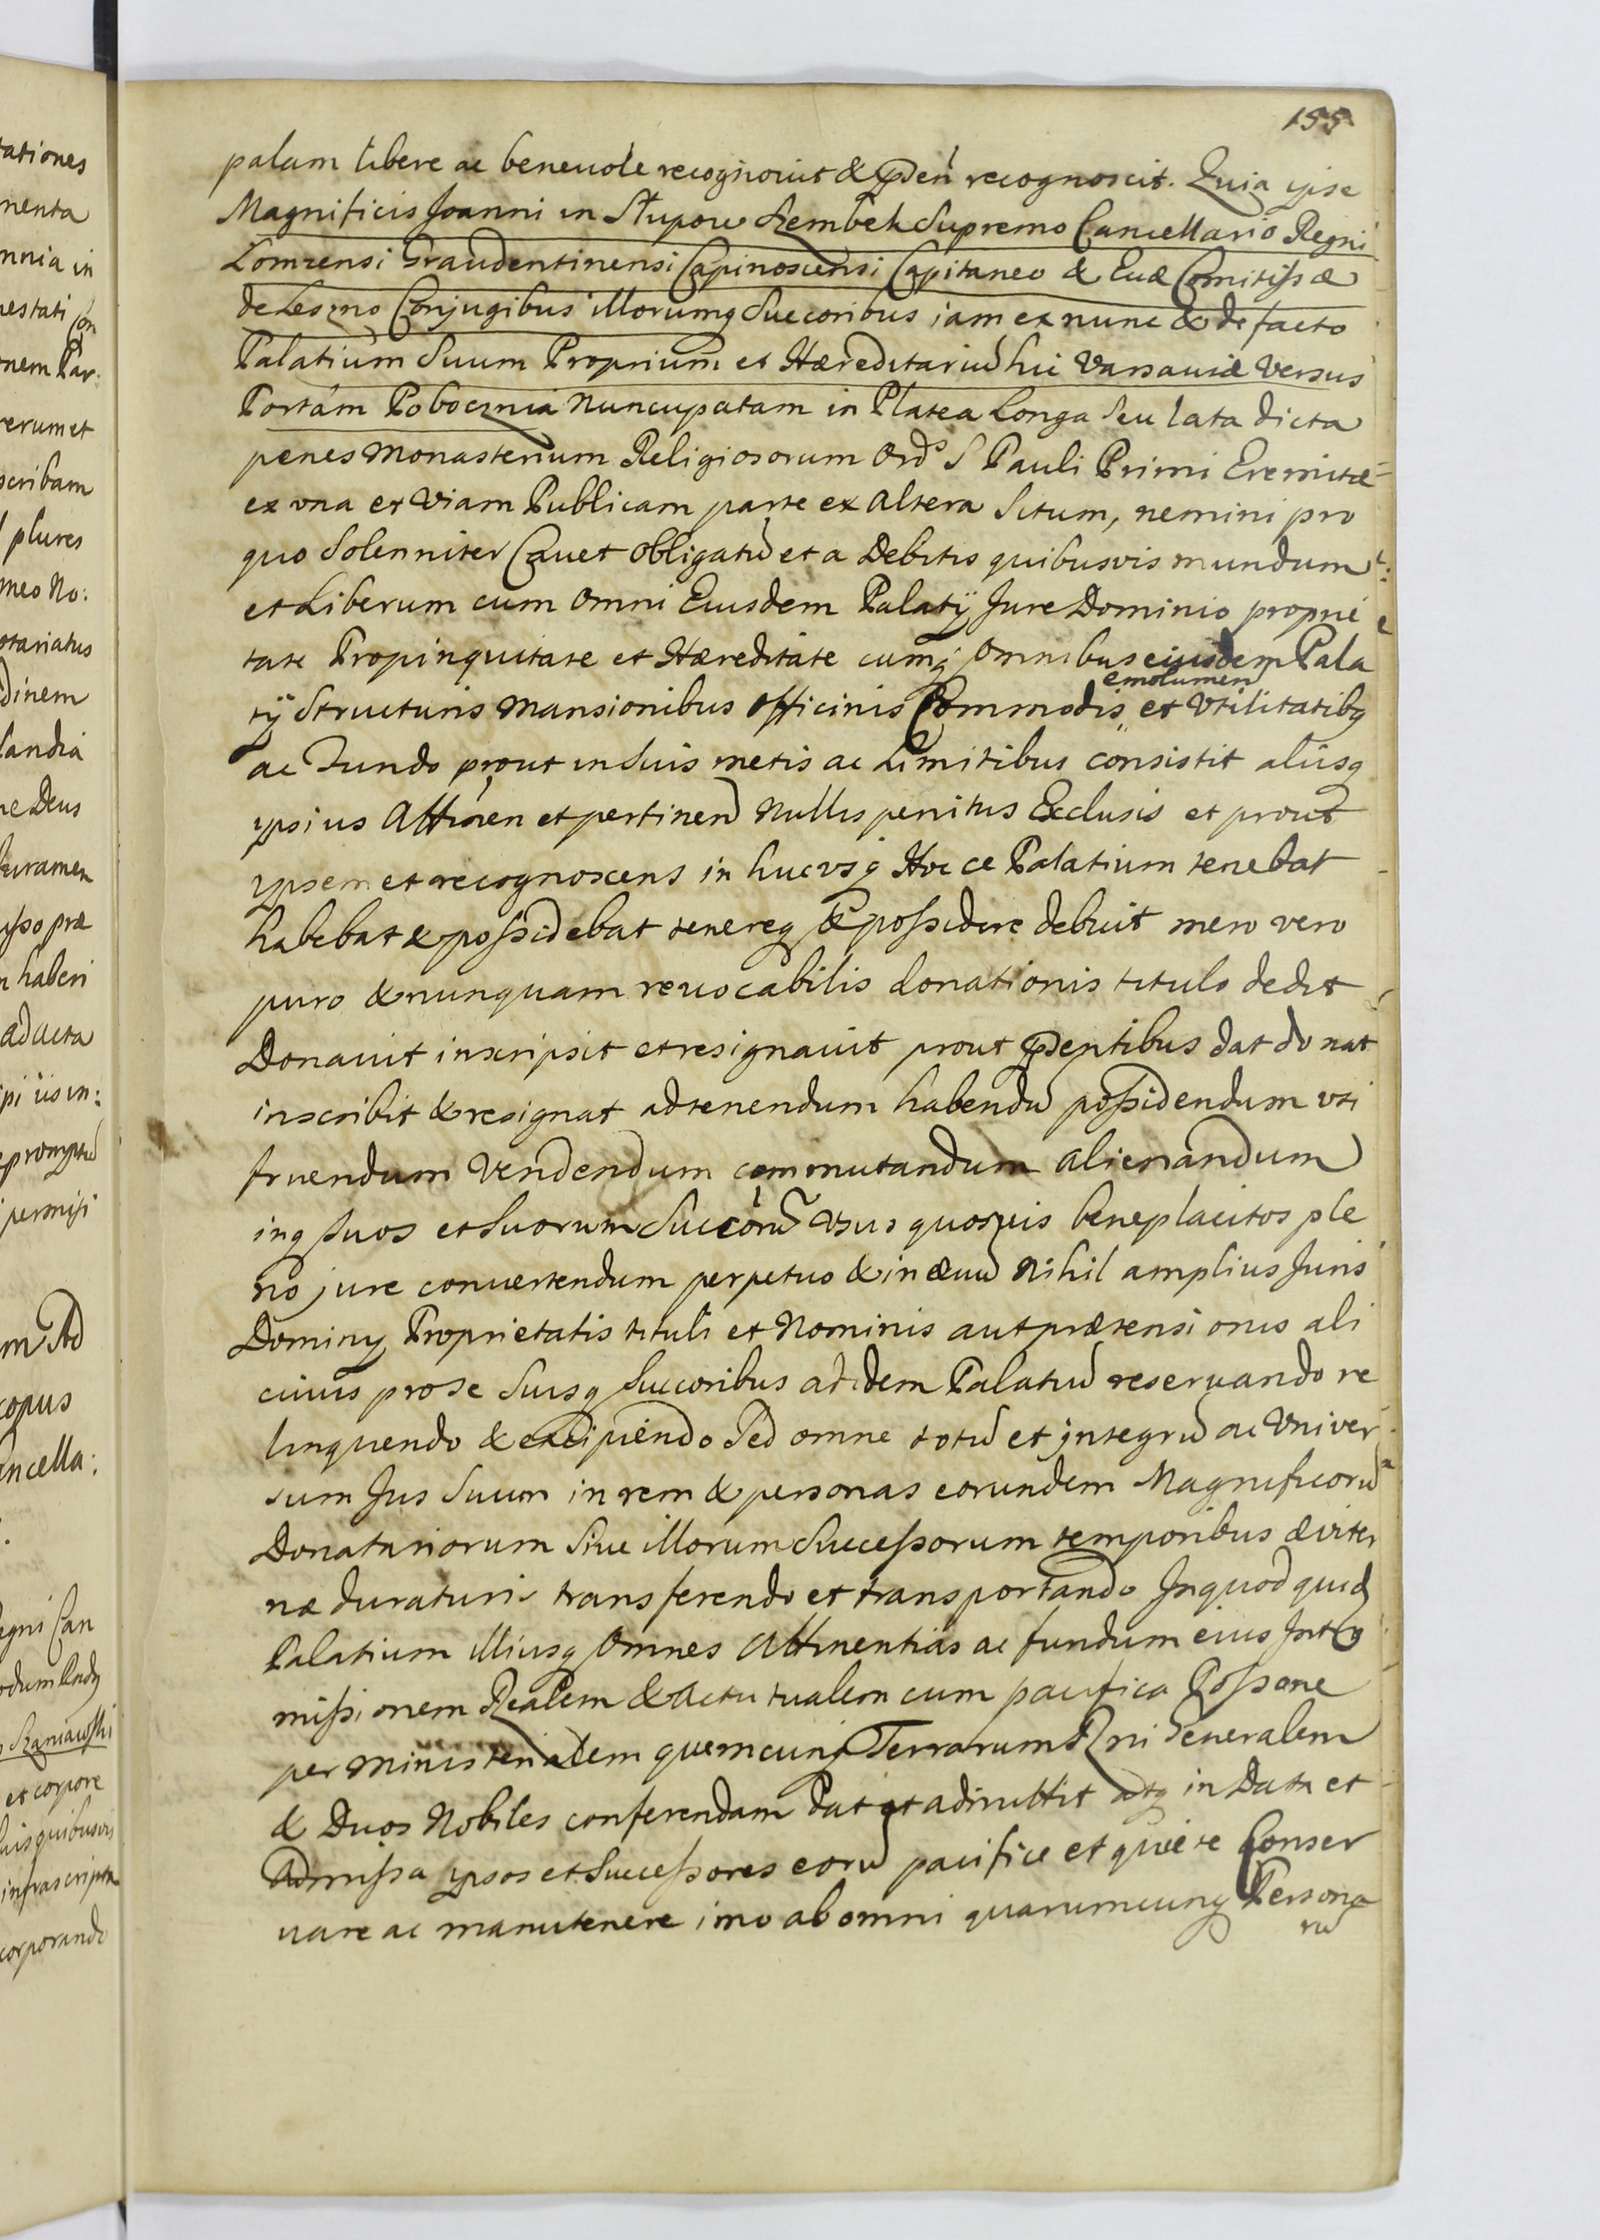 155
palam libere ac beneuole recognouit & pñden recognoscit. Quia ipse
Magnificis Joanni in Słupow Szembek Supremo Cancellario Regni
Lomzensi Graudentinensi Capinoscensi Capitaneo & Euæ Comitissæ
de Leszno Conjugibus illorumq Succoribus iam ex nunc & de facto
Palatium Suum Proprium et Hæreditariũ hic Varsauiæ versus
Portam Pobocznia Nuncupatam in Platea Longa Seu lata dicta
penes Monasterium Religiosorum Ord S Pauli Primi Eremitæ
ex vna et Viam Publicam parte ex altera Situm, nemini pro
quo Solenniter Cauet obligatũ et a Debitis quibusvis mundum
et Liberum cum Omni Eiusdem Palatÿ Jure Dominio proprie
tate Propinquitate et Hæreditate cumq Omnibus eiusdem Pala
emolumen
tÿ Structuris Mansionibus Officinis Commodis et Vtilitatibq
ac Fundo prout in Suis metis ac Limitibus consistit aliisq
ipsius Attinen et pertinen Nullis penitus Exclusis et prout
ipsemet recognoscens in hucvsq Hocce Palatium tenebat
habebat & possidebat tenereq & possidere debuit mero vero
puro & nunquam reuocabilis donationis titulo dedit
Donauit inscripsit et resignauit prout pñdentibus dat donat
inscribit & resignat ad tenendum habendũ possidendum vti
fruendum Vendendum commutandum alienandum
inq Suos et Suorum Succorũ Vsus quosuis beneplacitos ple
no jure conuertendum perpetuo & in æuũ Nihil amplius Juris
Dominÿ Proprietatis tituli et Nominis aut prætensionis ali
cuius pro se Suisq Succoribus ad idem Palatiũ reseruando re
linquendo & excipiendo Sed omne totũ et integrũ ac Vniver
sum Jus Suum in rem & personas eorundem Magnificorũ
Donatariorum Siue illorum Successorum temporibus æviter
næ duraturis transferendo et transportando In quod quid
Palatium illiusq Omnes Attinentias ac fundum eius Intro
missionem Realem & Actu tualem cum pacifica Possone
per Ministerialem quemcunq Terrarum Rni Generalem
& Duos Nobiles conferendam Dat et admittit atq in Data et
Admissa ipsos et Successores eorũ pacifice et quiete Conser
uare ac manutenere imo ab omni quarumcunq Persona
rũ